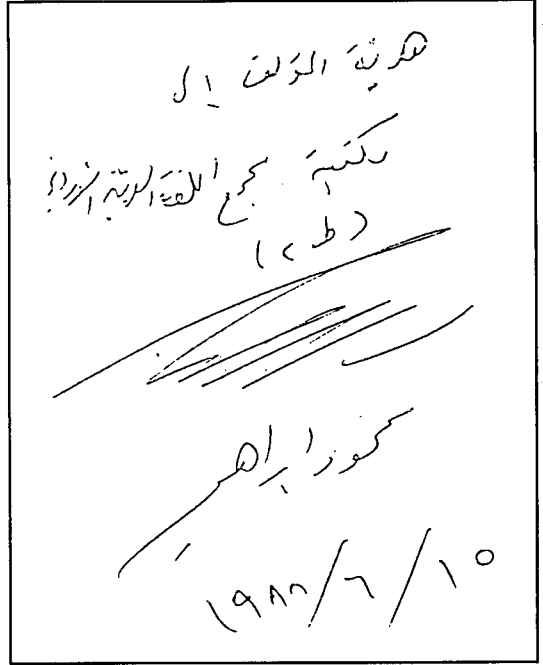 هدية المؤلف إلى
مكتبة مجمع اللغة العربية الأردني
(ط ٢)
محمود ابراهيم
١٩٨٨/٦/١٥